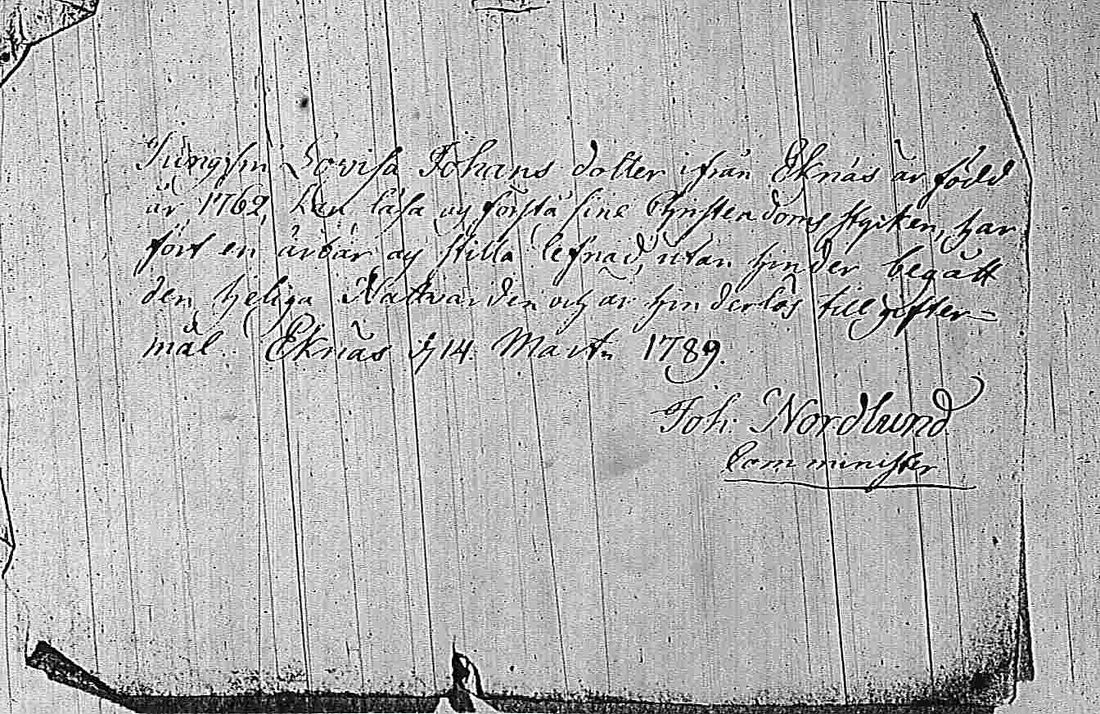 Jungfrn Lovisa Johans dotter ifrån Eknäs är född
år 1762, kan läsa og förstå sine Christendoms stycken, har
fört en ärbar og stilla lefnad, utan hinder begått
den heliga Nattvarden och är hinderlös till gifter=
mål. Eknäs d 14 Martii 1789.
Joh. Nordlund
Comminister